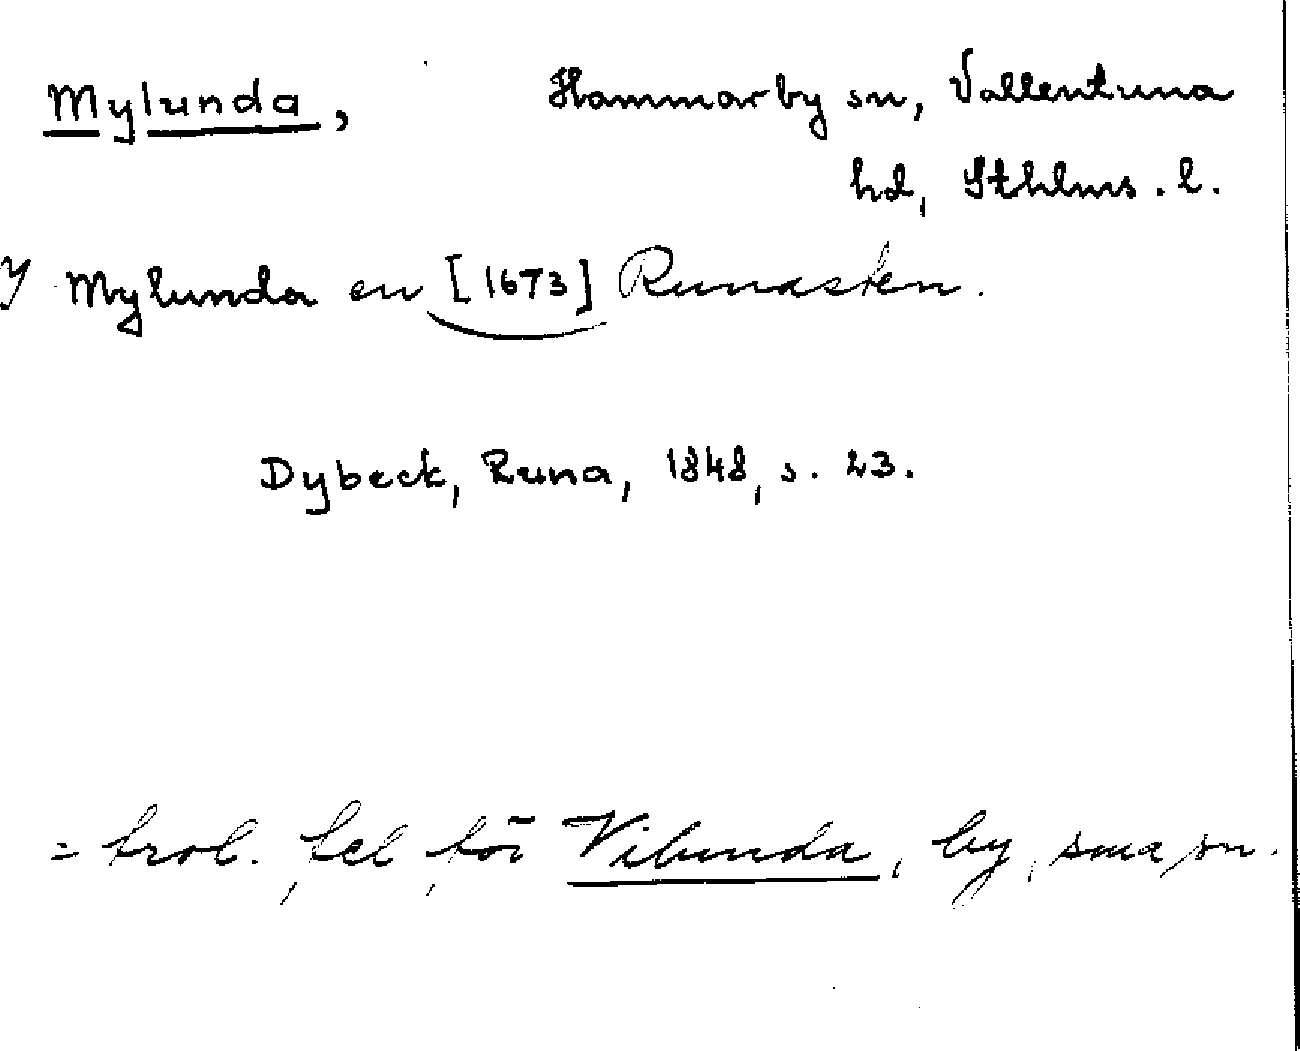 Mylunda, Hammarby sn, Vallentuna
hd, Sthlms. l.
Y Mylunda en [1673] Runasten.
Dybeck, Runa, 1848, s. 23.
= trol. fel för Vibunda, by, sma sn.